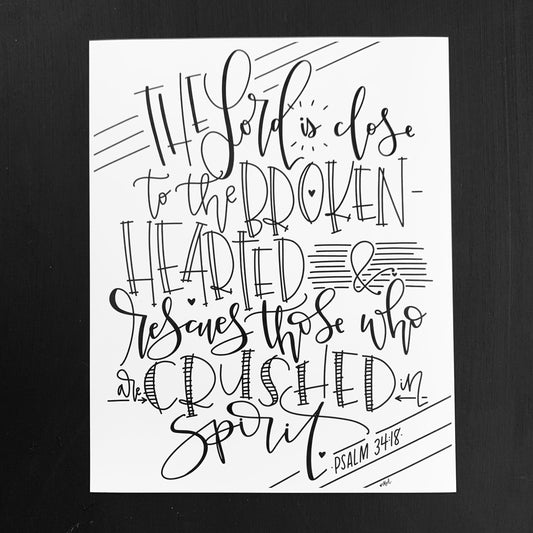 THE Lord is close
to the BROKEN-
HEARTED &
rescues those who
are CRUSHED in
spirit.
·PSALM 34:18·